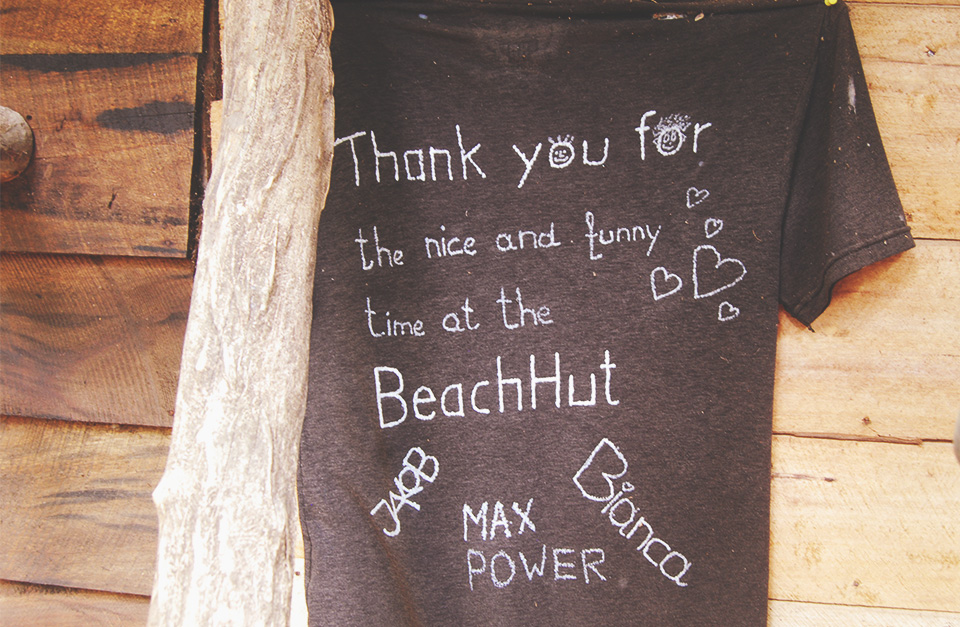 Thank you for
the nice and funny
time at the
BeachHut
JAKOB
Bianca
MAX
POWER